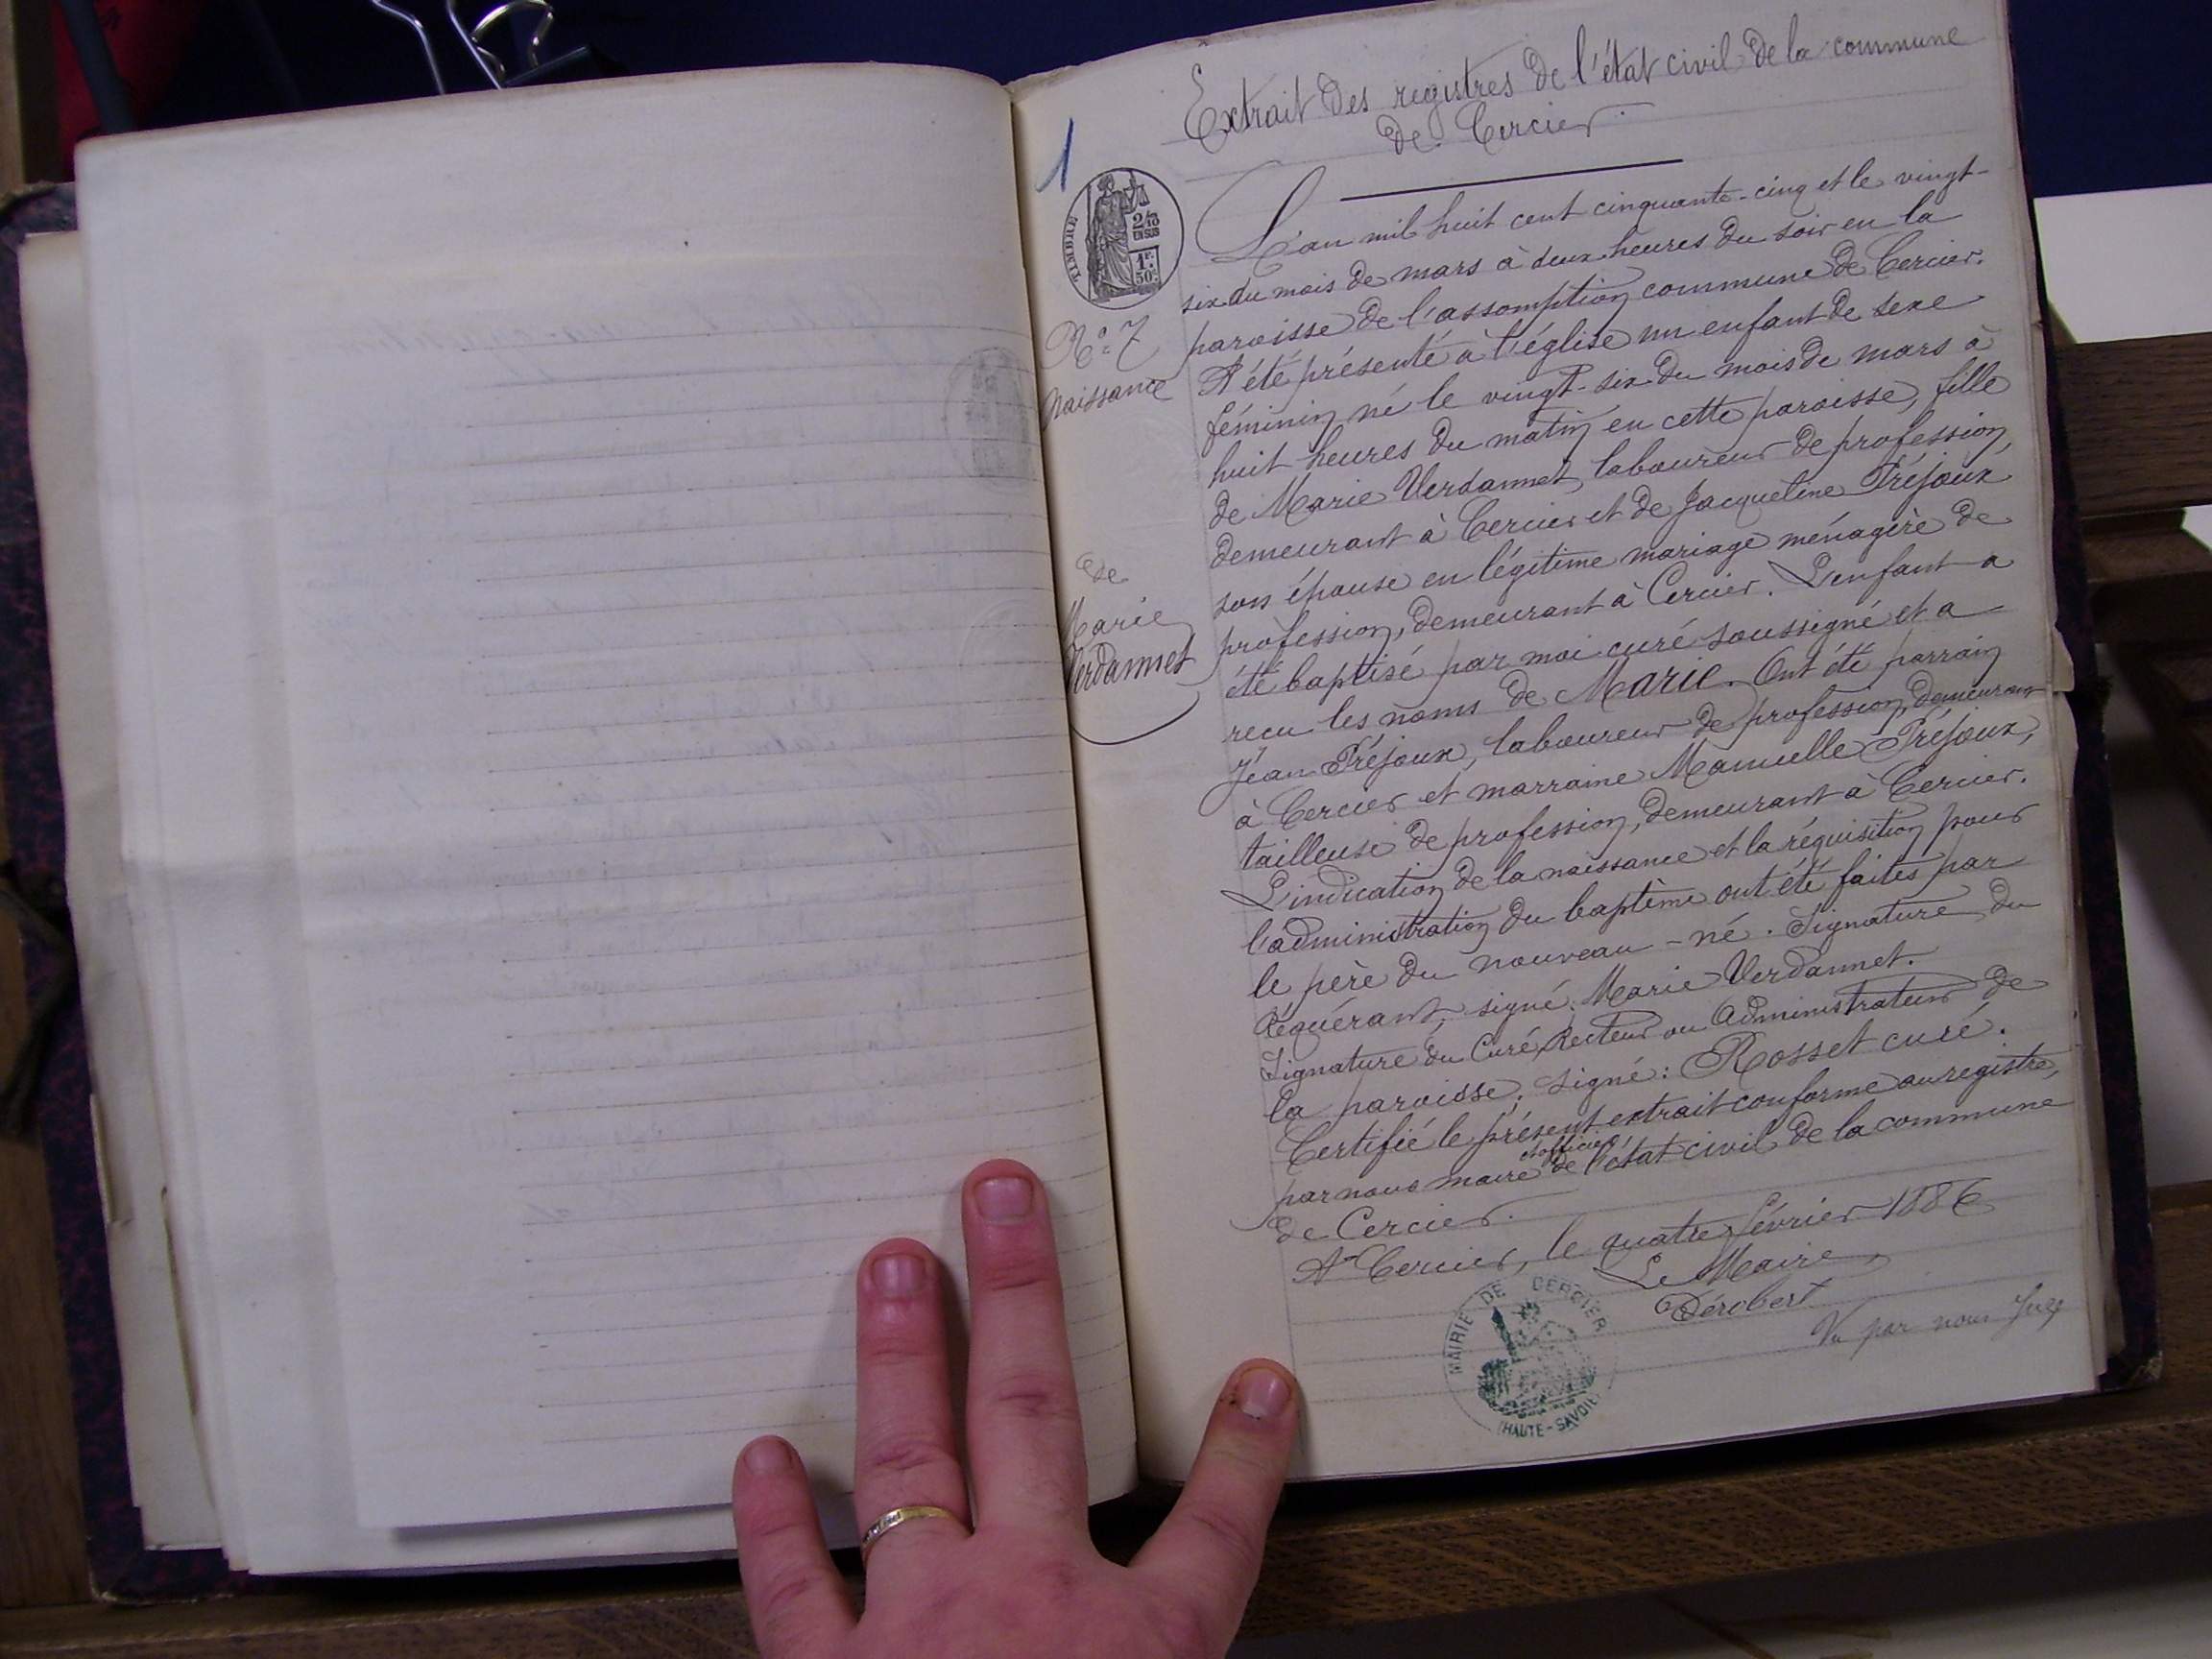 Extrait des registres de l'état civil de la commune
de Cercier.
1
TIMBRE
2/10
EN SUS
1F.
50c
N° 7
Naissance
de
Marie
Verdannet
L'an mil huit cent cinquante-cinq et le vingt-
six du mois de mars à deux heures du soir en la
paroisse de l'assomption commune de Cercier.
A été présenté à l'église un enfant de sexe
féminin né le vingt-six du mois de mars à
huit heures du matin en cette paroisse, fille
de Marie Verdannet, laboureur de profession,
demeurant à Cercier et de Jacqueline Tréjoux
son épouse en légitime mariage ménagère de
profession, demeurant à Cercier. L'enfant a
été baptisé par moi curé soussigné et a
recu les noms de Marie. Ont été parrain
Jean Tréjoux, laboureur de profession, demeurant
à Cercier et marraine Tréjoux,
tailleuse de profession, demeurant à Cercier.
L'indication de la naissance et la réquisition pour
l'administration du baptême ont été faites par
le père du nouveau-né. Signature du
Réquérant, signé: Marie Verdannet.
Signature du Curé, Recteur ou Administrateur de
la paroisse, signé: Rosset curé.
Certifié le présent extrait conforme au registre,
par nous maire et officier de l'état civil de la commune
de Cercier.
A Cercier, le quatre février 1886
Le Maire,
Dérobert
Vu par nous Juge
MAIRIE DE CERCIER
(HAUTE-SAVOIE)